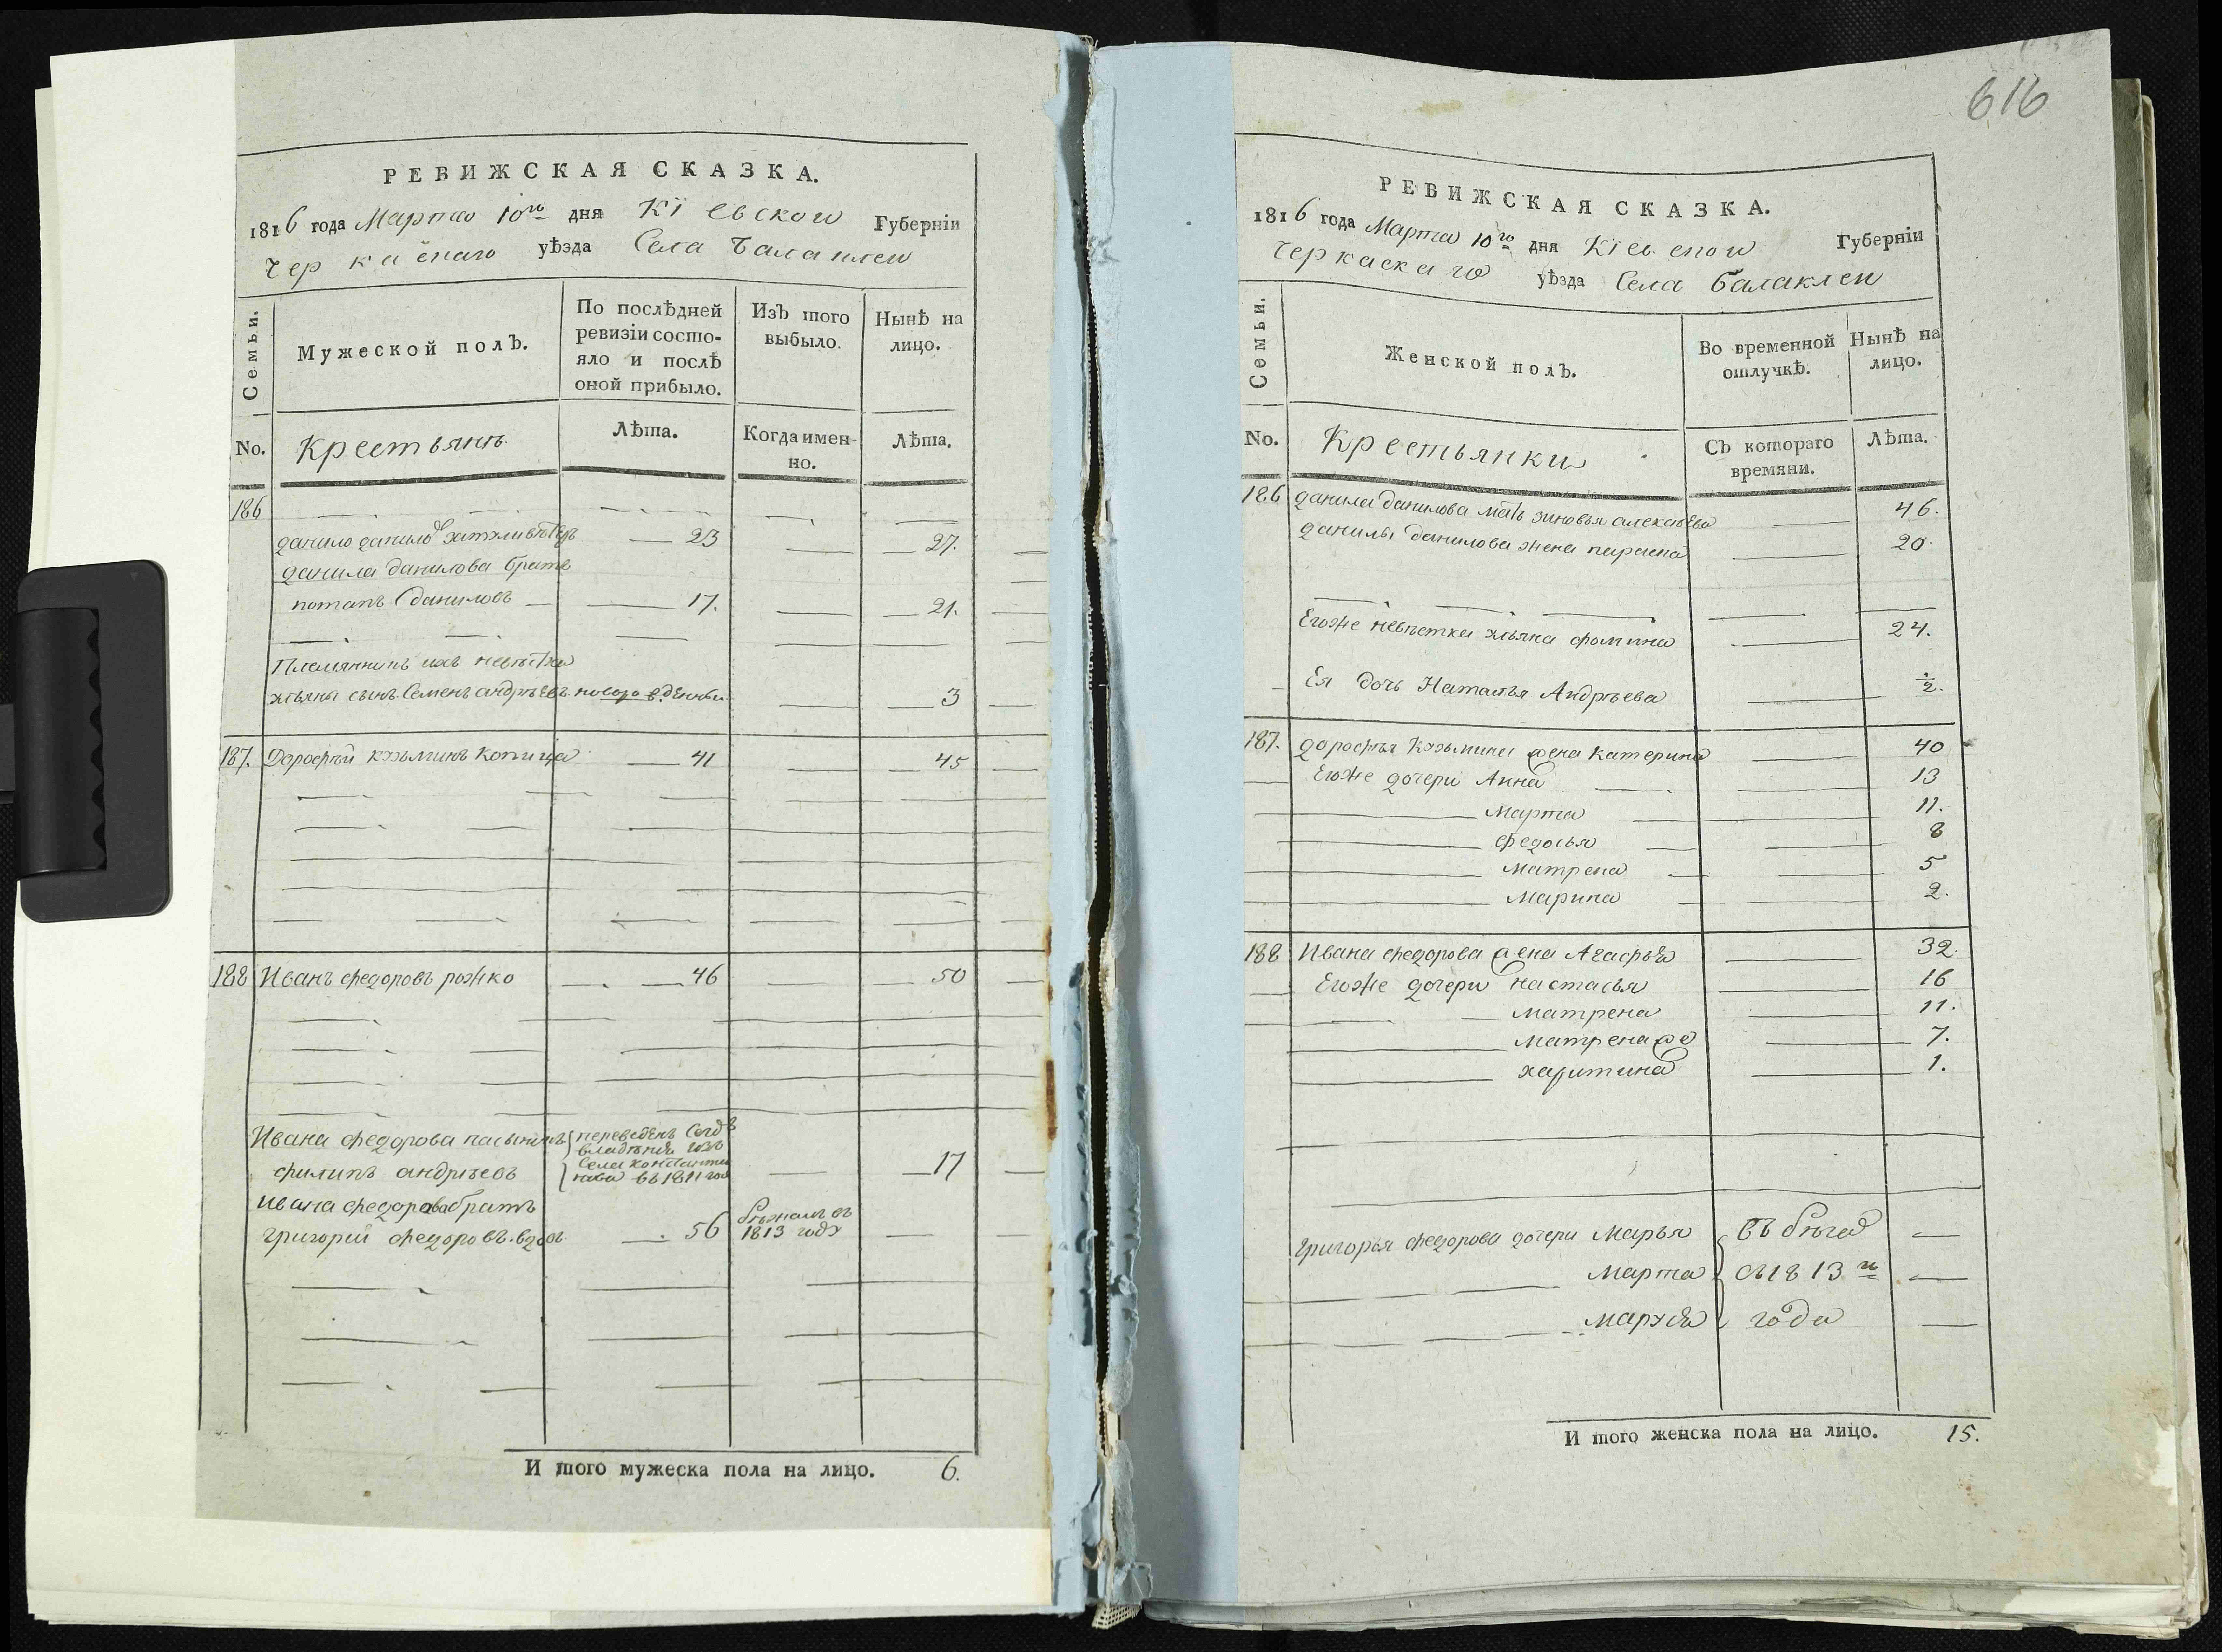 РЕВИЖСКАЯ СКАЗКА.
1816 года Марта 10го дня Кіевской Губерніи
Черкаскаго уѣзда Села Балаклеи
Семьи. Мужеской полЪ. По послѣдней ревизіи состояло и послѣ оной прибыло. ИзЪ того выбыло. НынѢ на лицо.
No. Крестьянъ Лѣта. Когда имен-но. Лѣта.
186
данило данилов 23 27.
данила данилова братъ
потапъ даниловъ 17. 21.
Племянникъ ихъ невѣстки
ульяны сынъ Семенъ андрѣевъ новорожденны 3
187. Дорофѣй кузьминъ копица 41 45
188 Иванъ федоровъ рожко 46 50
Ивана федорова пасынокъ переведенъ Сегоѣ
владѣния изъ
филипъ андрѣевъ Села константи 17
нова въ 1811 году
ивана федорова братъ
григорий федоровъ вдовъ 56 бѣжалъ въ 1813 году
И того мужеска пола на лицо. 6.
616
РЕВИЖСКАЯ СКАЗКА.
1816 года Марта 10го дня Кіевской Губерніи
Черкаскаго уѣзда Села балаклеи
Семьи. Женской полЪ. Во временной отлучкѢ. НынѢ на лицо.
No. Крестьянки СЪ котораго времяни. Лѣта.
186 данила данилова мать зиновья алексѣева 46.
данилы данилова жена параска 20
Егоже невѣстка ульяна фомина 24.
Ея дочь Наталья Андрѣева ½.
187. дорофѣя Кузьмина жена катерина 40
Егоже дочери Анна 13
Марта 11.
федосья 8
матрена 5
марина 2.
188 Ивана федорова жена Агафья 32.
Егоже дочери настасья 16
матрена 11.
матрена же 7.
харитина 1.
григорья федорова дочери марья въ бѣгах
марта съ 1813го
маруся года
И того женска пола на лицо. 15.